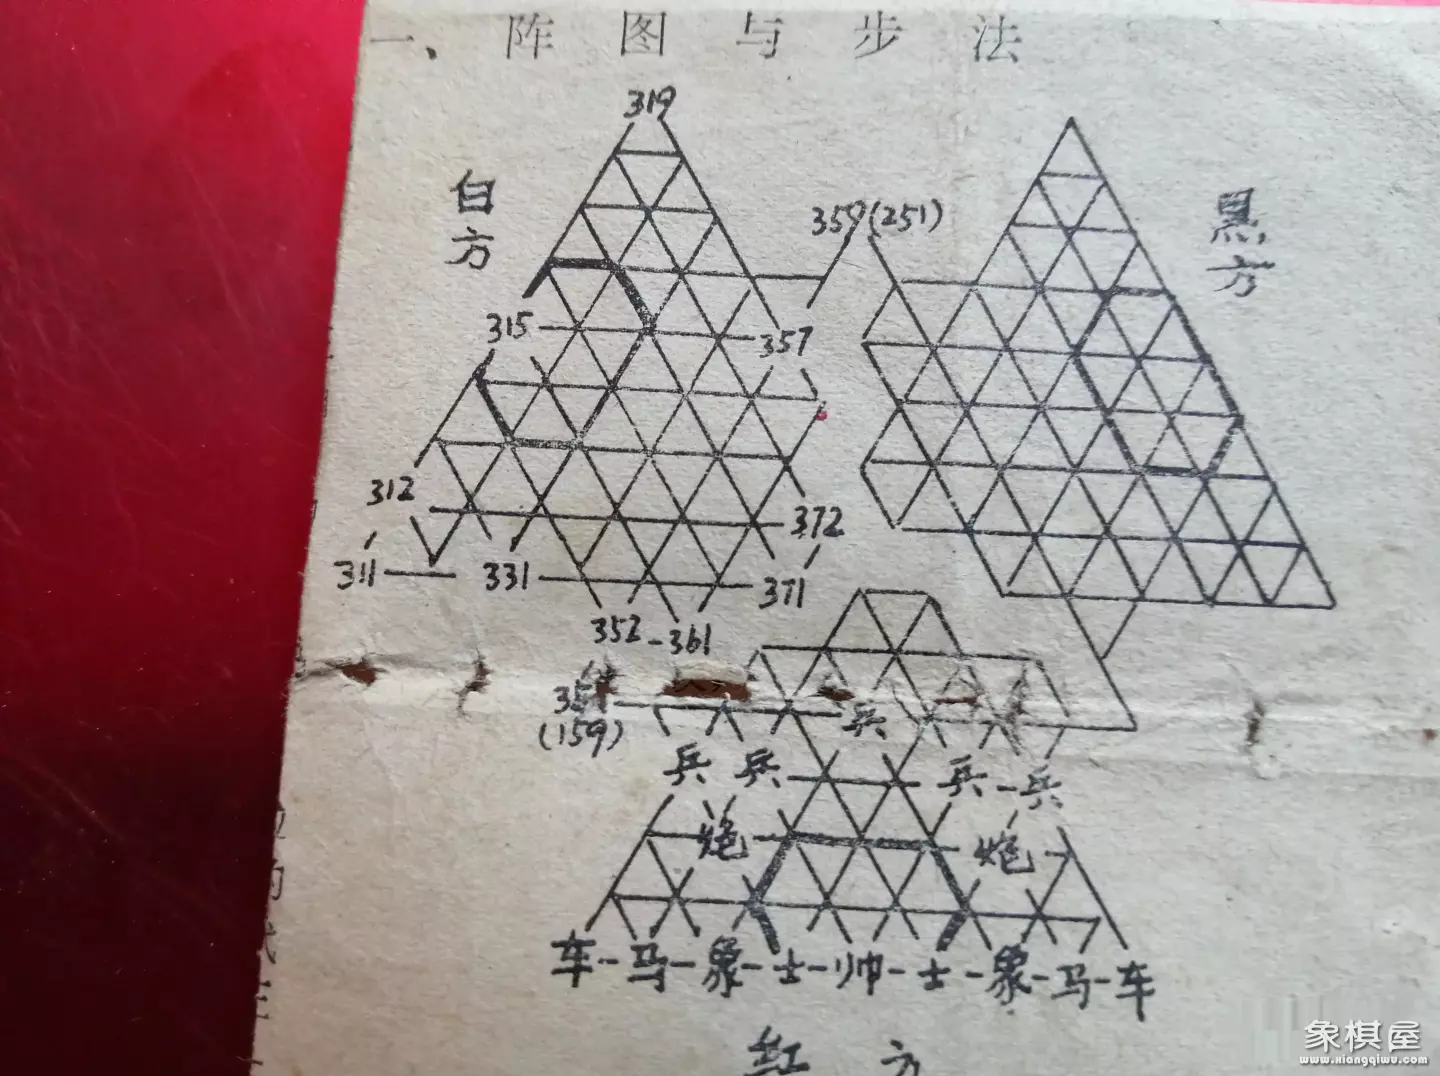 一、阵图与步法
319
白方
359(251)
黑方
315
357
312
372
311
331
371
352
361
(159)
兵
兵 兵 兵 兵
炮 炮
车 马 象 士 帅 士 象 马 车
红方
象棋屋
www.xiangqiwu.com